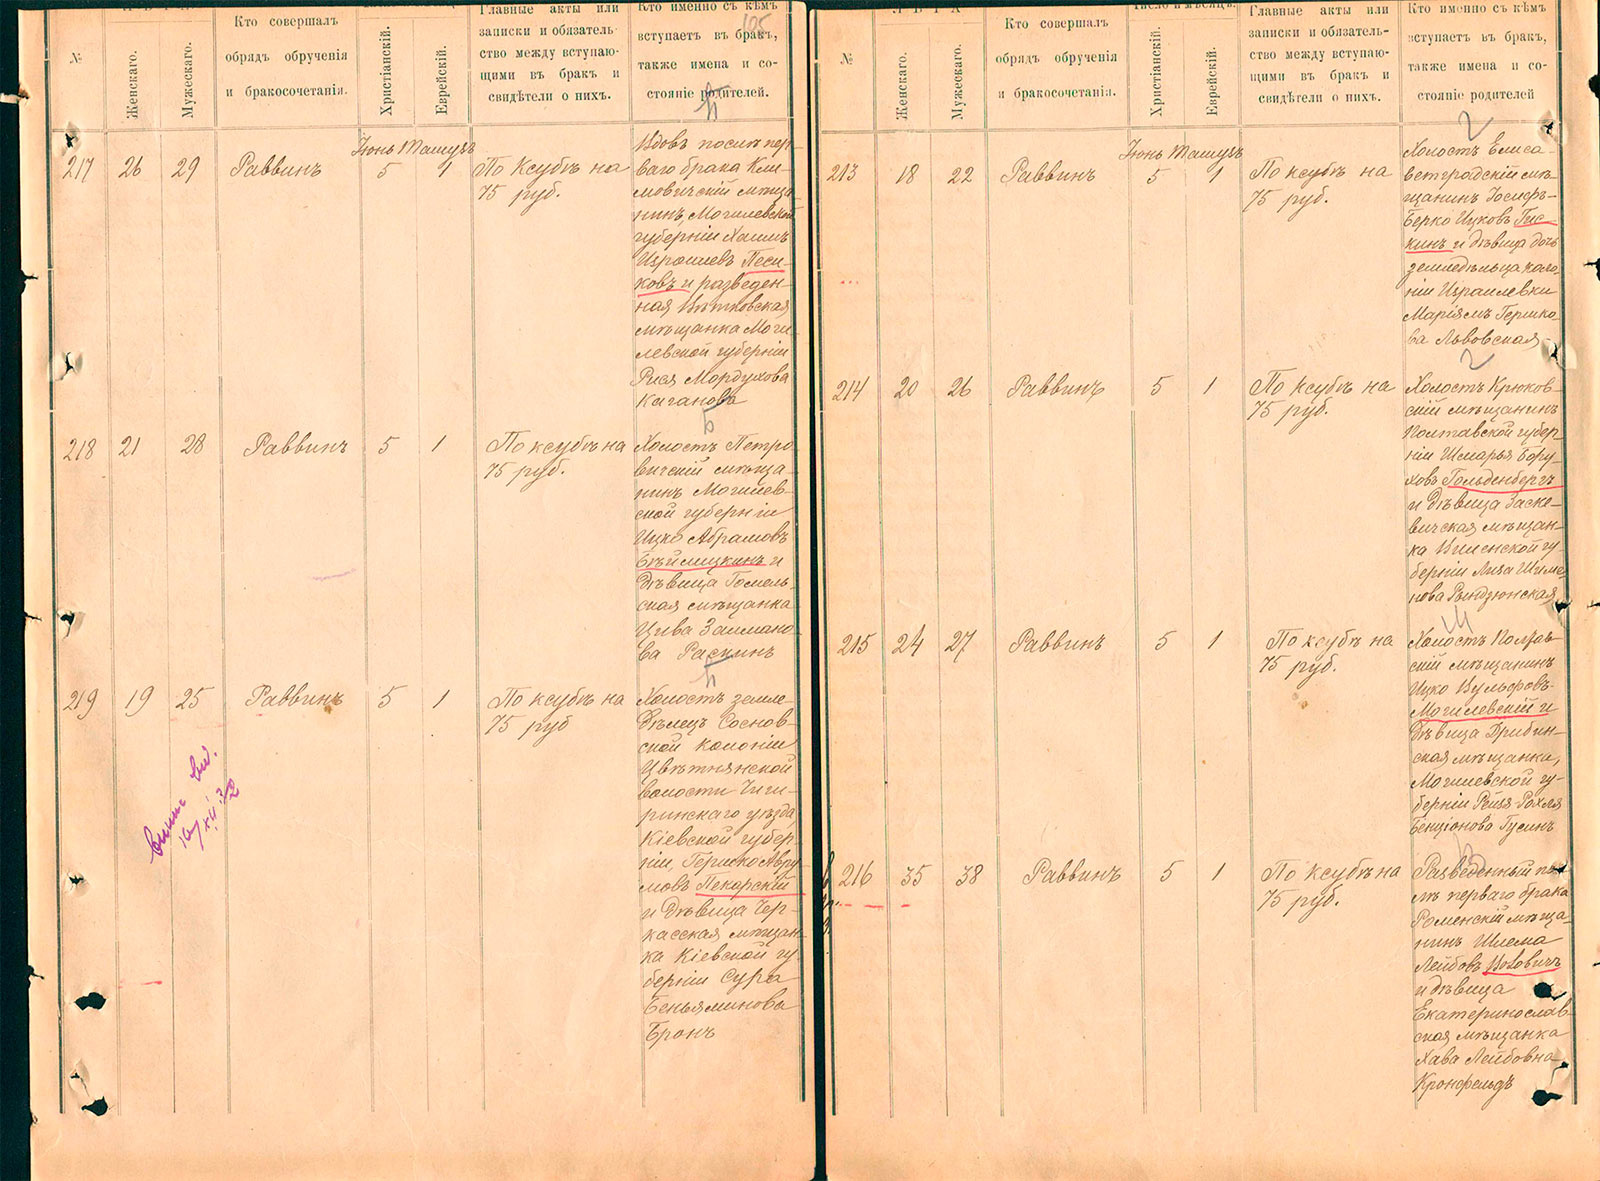 105
№
Женскаго.
Мужескаго.
Кто совершалъ
обрядъ обрученія
и бракосочетанія.
Христіанскій.
Еврейскій.
Главные акты или
записки и обязатель-
ство между вступаю-
щими въ бракъ и
свидѣтели о нихъ.
Кто именно съ кѣмъ
вступаетъ въ бракъ,
также имена и со-
стояніе родителей.
217 26 29 Раввинъ
Іюнь Тамузъ
5 1
По ксубѣ на
75 руб.
Вдовъ послѣ пер-
ваго брака Кли-
мовичскій мѣща-
нинъ, Могилевской
губерніи Хаимъ
Изроилевъ Песи-
ковъ и разведен-
ная Вѣтковская
мѣщанка Моги-
левской губерніи
Рися Мордухова
Каганова
218 21 28 Раввинъ 5 1
По ксубѣ на
75 руб.
Холостъ Петро-
вичскій мѣща-
нинъ Могилев-
ской губерніи
Ицко Абрамовъ
Бѣйлицкинъ и
дѣвица Гомель-
ская мѣщанка
Цива Залмано-
ва Раскинъ
219 19 25 Раввинъ 5 1
По ксубѣ на
75 руб
Холостъ земле-
дѣлецъ Соснов-
ской колоніи
Цвѣтнянской
волости Чиги-
ринскаго уѣзда,
Кіевской губер-
ніи, Гершко Авру-
мовъ Пекарскій
и дѣвица Чер-
касская мѣщан-
ка Кіевской гу-
берніи Сура
Беньяминова
Бронъ
№
Женскаго.
Мужескаго.
Кто совершалъ
обрядъ обрученія
и бракосочетанія.
Число и мѣсяцъ.
Христіанскій.
Еврейскій.
Главные акты или
записки и обязатель-
ство между вступаю-
щими въ бракъ и
свидѣтели о нихъ.
Кто именно съ кѣмъ
вступаетъ въ бракъ,
также имена и со-
стояніе родителей
2
213 18 22 Раввинъ
Іюнь Тамузъ
5 1
По ксубѣ на
75 руб.
Холостъ Елиса-
ветградскій мѣ-
щанинъ Іосифъ-
Берко Ицковъ Гис-
кинъ и дѣвица дочь
земледѣльца коло-
ніи Израилевки
Маріямъ Гершко-
ва Львовская
2
214 20 26 Раввинъ 5 1
По ксубѣ на
75 руб.
Холостъ Крюков-
скій мѣщанинъ
Полтавской губер-
ніи Шмарья Бору-
ховъ Гольденбергъ
и дѣвица Заске-
вичская мѣщан-
ка Виленской гу-
берніи Лиза Шиме-
нова Рындзюнская
215 24 27 Раввинъ 5 1
По ксубѣ на
75 руб.
Холостъ Полтав-
скій мѣщанинъ
Ицко Вульфовъ
Могилевскій и
дѣвица Дрибин-
ская мѣщанка,
Могилевской гу-
берніи Рейзя-Рохля
Бенціонова Гусинъ
216 35 38 Раввинъ 5 1
По ксубѣ на
75 руб.
Разведенный пос-
лѣ перваго брака
Роменскій мѣща-
нинъ Шлема
Лейбовъ Иовичъ
и дѣвица
Екатеринослав-
ская мѣщанка
Хава Лейбовна
Кронфельдъ